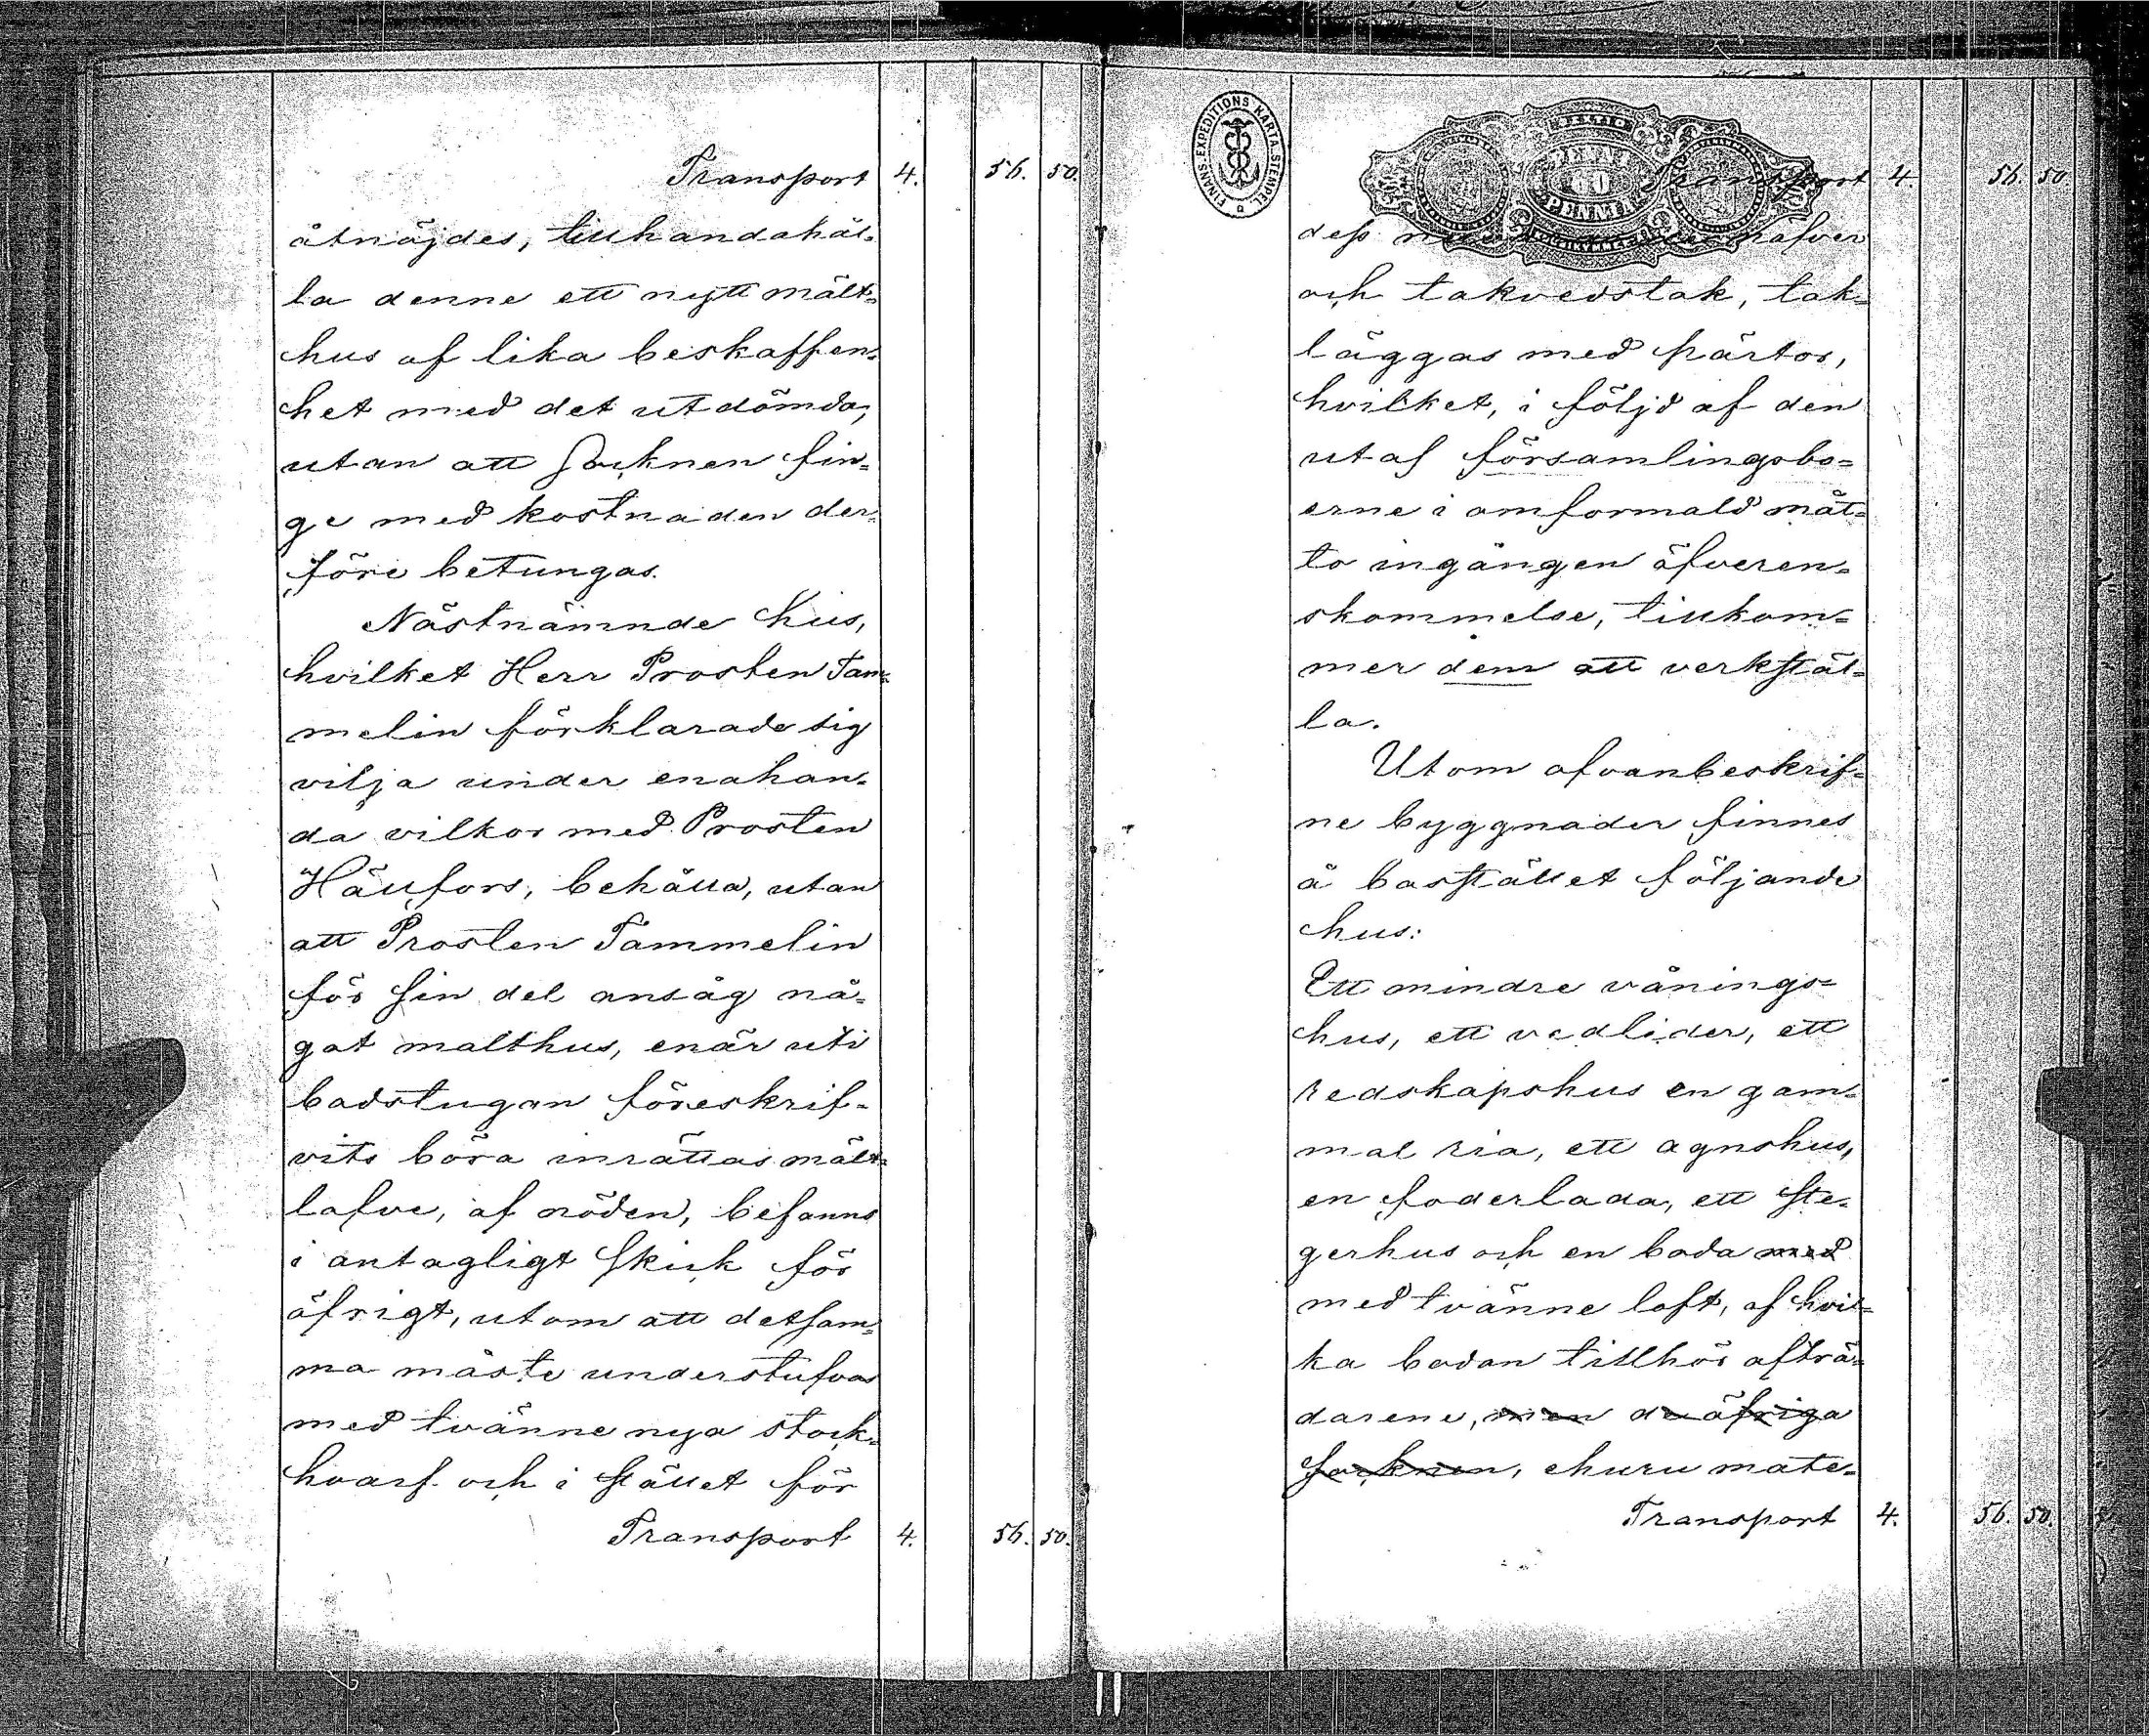 Transport 4. 56. 50.
åtnöjdes, tillhandahål-
la denne ett nytt mält-
hus af lika beskaffen-
het med det utdömda,
utan att Socknen fin-
ge med kostnaden der-
före betungas.
Nästnämnde hus,
hvilket Herr Prosten Tam-
melin förklarade sig
vilja under enahan-
da vilkor med Prosten
Hällfors, behålla, utan
att Prosten Tammelin
för sin del ansåg nå-
got malthus, enär uti
badstugan föreskrif-
vits böra inrättas mält-
lafve, af nöden, befanns
i antagligt skick för
öfrigt, utom att detsam-
ma måste understufvas
med tvänne nya stock-
hvarf och i stället för
Transport 4. 56. 50.
FINANS. EXPEDITIONS KARTA. STEMPEL.
60
PENNIÄ
Transport 4. 56. 50.
dess
och takvedstak, tak-
läggas med pärtor,
hvilket, i följd af den
utaf församlingsbo-
erne i omformäld måt-
to ingången öfveren-
skommelse, tillkom-
mer dem att verkstäl-
la.
Utom ofvanbeskrif-
ne byggnader finnes
å boställlet följande
hus:
Ett mindre vånings-
hus, ett vedlider, ett
redskapshus en gam-
mal ria, ett agnshus,
en foderlada, ett ste-
gerhus och en boda med
med tvänne loft, af hvil-
ka bodan tillhör afträ-
darene, men de öfriga
Socknen, ehuru mate-
Transport 4. 56. 50.